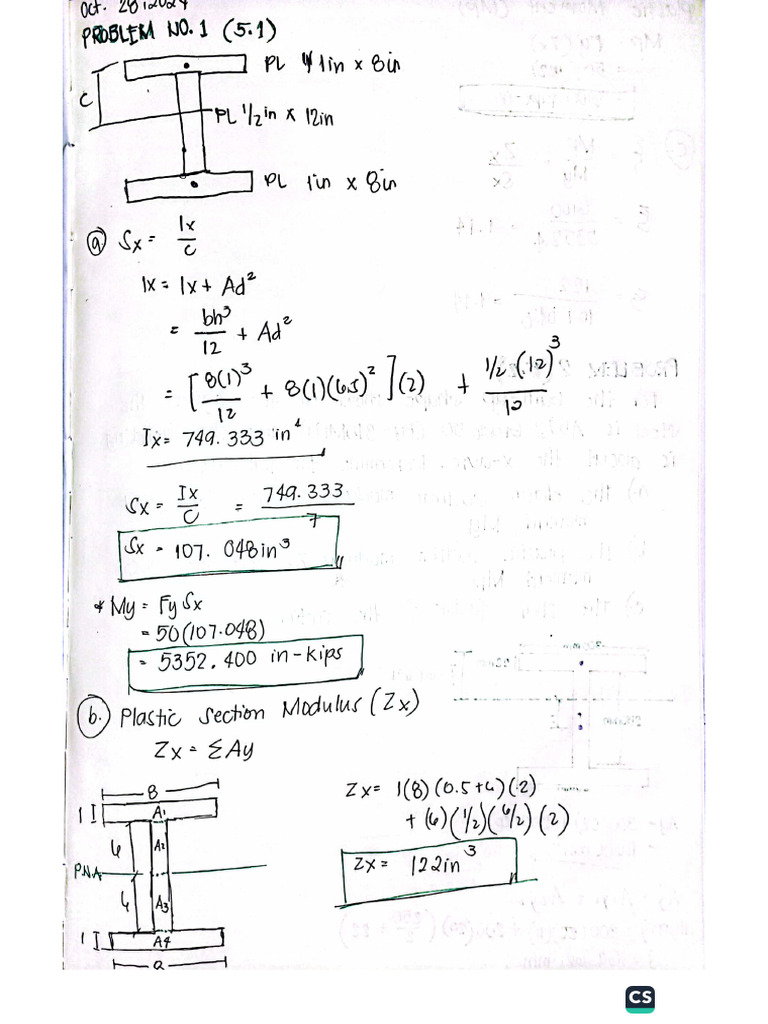 Oct. 28, 2024
PROBLEM NO. 1 (5.1)
PL 1in x 8in
C
PL 1/2 in x 12in
PL 1in x 8in
a) Sx = Ix/C
Ix = Ix + Ad²
= bh³/12 + Ad²
= [8(1)³/12 + 8(1)(6.5)²](2) + 1/2(12)³/12
Ix = 749.333 in⁴
Sx = Ix/C = 749.333/7
Sx = 107.048in³
* My = FySx
= 50(107.048)
= 5352.400 in-kips
b. Plastic Section Modulus (Zx)
Zx = ΣAy
8
1 I A1
6 A2
PNA
6 A3
1 I A4
8
Zx = 1(8)(0.5+6)(2)
+ (6)(1/2)(6/2)(2)
Zx = 122in³
CS